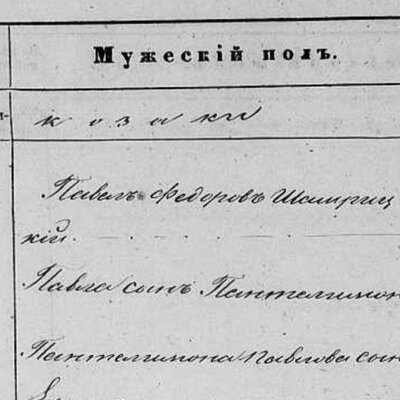 Мужескій полъ.
и-
козаки
Павелъ Федоровъ Шамриц
кій.
Павла сынъ Пантелимон
Пантелимона Павлова сын